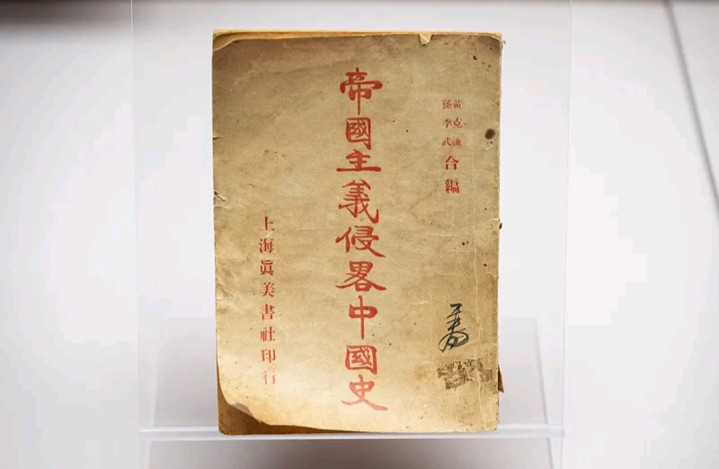 黃克謙
孫季武
合編
帝國主義侵畧中國史
上海眞美書社印行